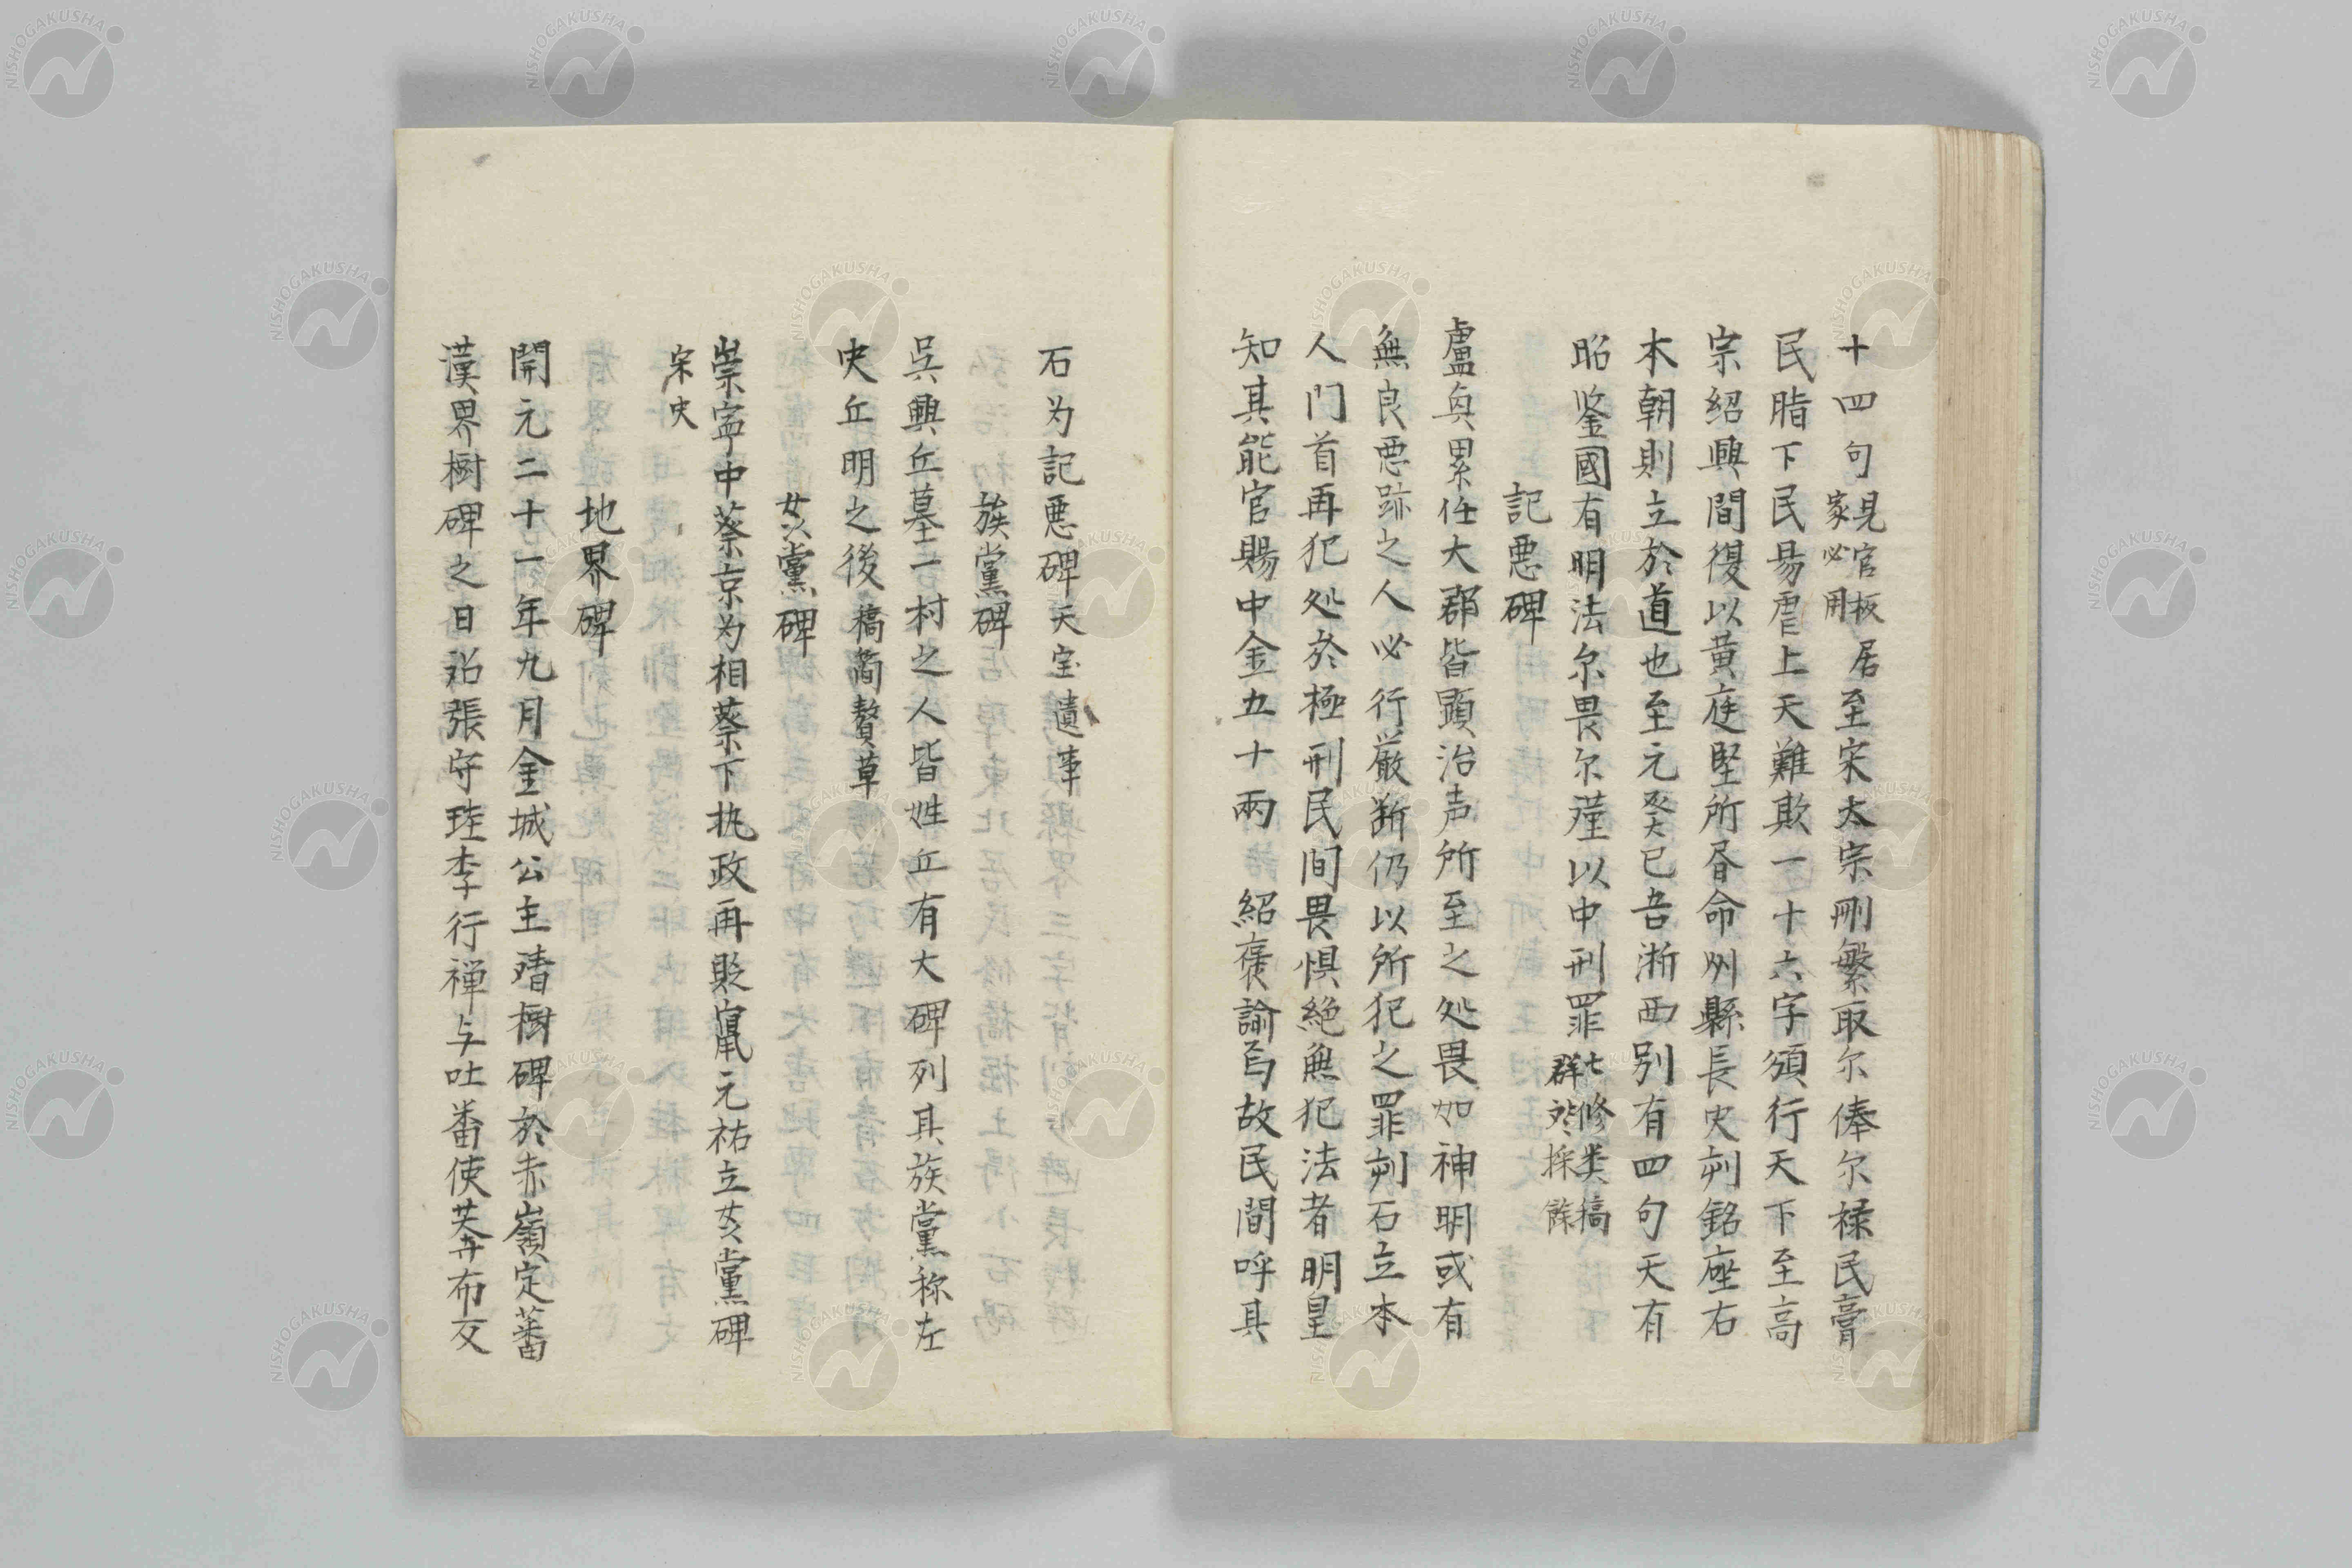 十四句見官板居家必用至宋太宗刪繁取尔俸尔禄民膏
民脂下民易虐上天難欺一十六字頒行天下至高
宗紹興間復以黄庭堅所書命州縣長史刻銘座右
木朝則立於道也至元癸已吾浙西別有四句天有
昭鉴國有明法尔畏尔謹以中刑罪七修类稿群談採餘
記悪碑
盧奐累任大郡皆顕治声所至之処畏如神明或有
無良悪跡之人必行厳断仍以所犯之罪刻石立本
人门首再犯処於極刑民间畏惧絶無犯法者明皇
知其能官賜中金五十兩 紹褒諭焉故民間呼其
石为記悪碑天宝遺事
族黨碑
呉興丘墓一村之人皆姓丘有大碑列其族黨称左
史丘明之後稿簡贅草
奸黨碑
崇寧中蔡京为相蔡卞执政再貶竄元祐立奸黨碑
宋史
地界碑
開元二十一年九月金城公主請樹碑於赤嶺定蕃
漢界樹碑之日詔張守珪李行禅与吐蕃使莽布交
NISHOGAKUSHA